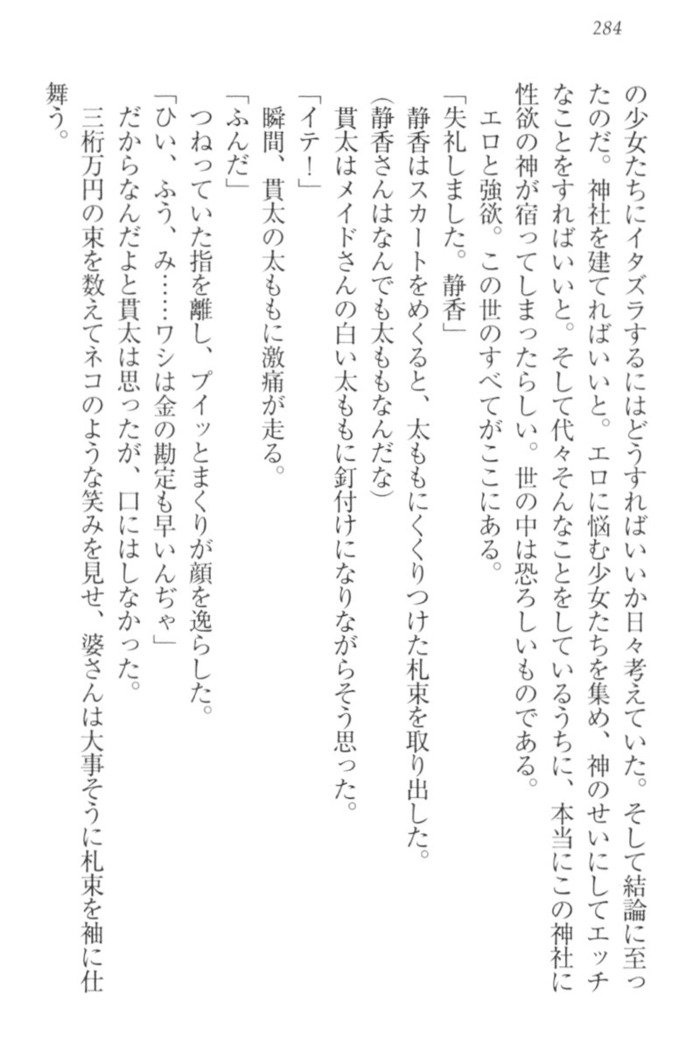 284
の少女たちにイタズラするにはどうすればいいか日々考えていた。そして結論に至っ
たのだ。神社を建てればいいと。エロに悩む少女たちを集め、神のせいにしてエッチ
なことをすればいいと。そして代々そんなことをしているうちに、本当にこの神社に
性欲の神が宿ってしまったらしい。世の中は恐ろしいものである。
エロと強欲。この世のすべてがここにある。
「失礼しました。静香」
静香はスカートをめくると、太ももにくくりつけた札束を取り出した。
(静香さんはなんでも太ももなんだな)
貫太はメイドさんの白い太ももに釘付けになりながらそう思った。
「イテ!」
瞬間、貫太の太ももに激痛が走る。
「ふんだ」
つねっていた指を離し、プイッとまくりが顔を逸らした。
「ひい、ふう、み……ワシは金の勘定も早いんぢゃ」
だからなんだよと貫太は思ったが、口にはしなかった。
三桁万円の束を数えてネコのような笑みを見せ、婆さんは大事そうに札束を袖に仕
舞う。